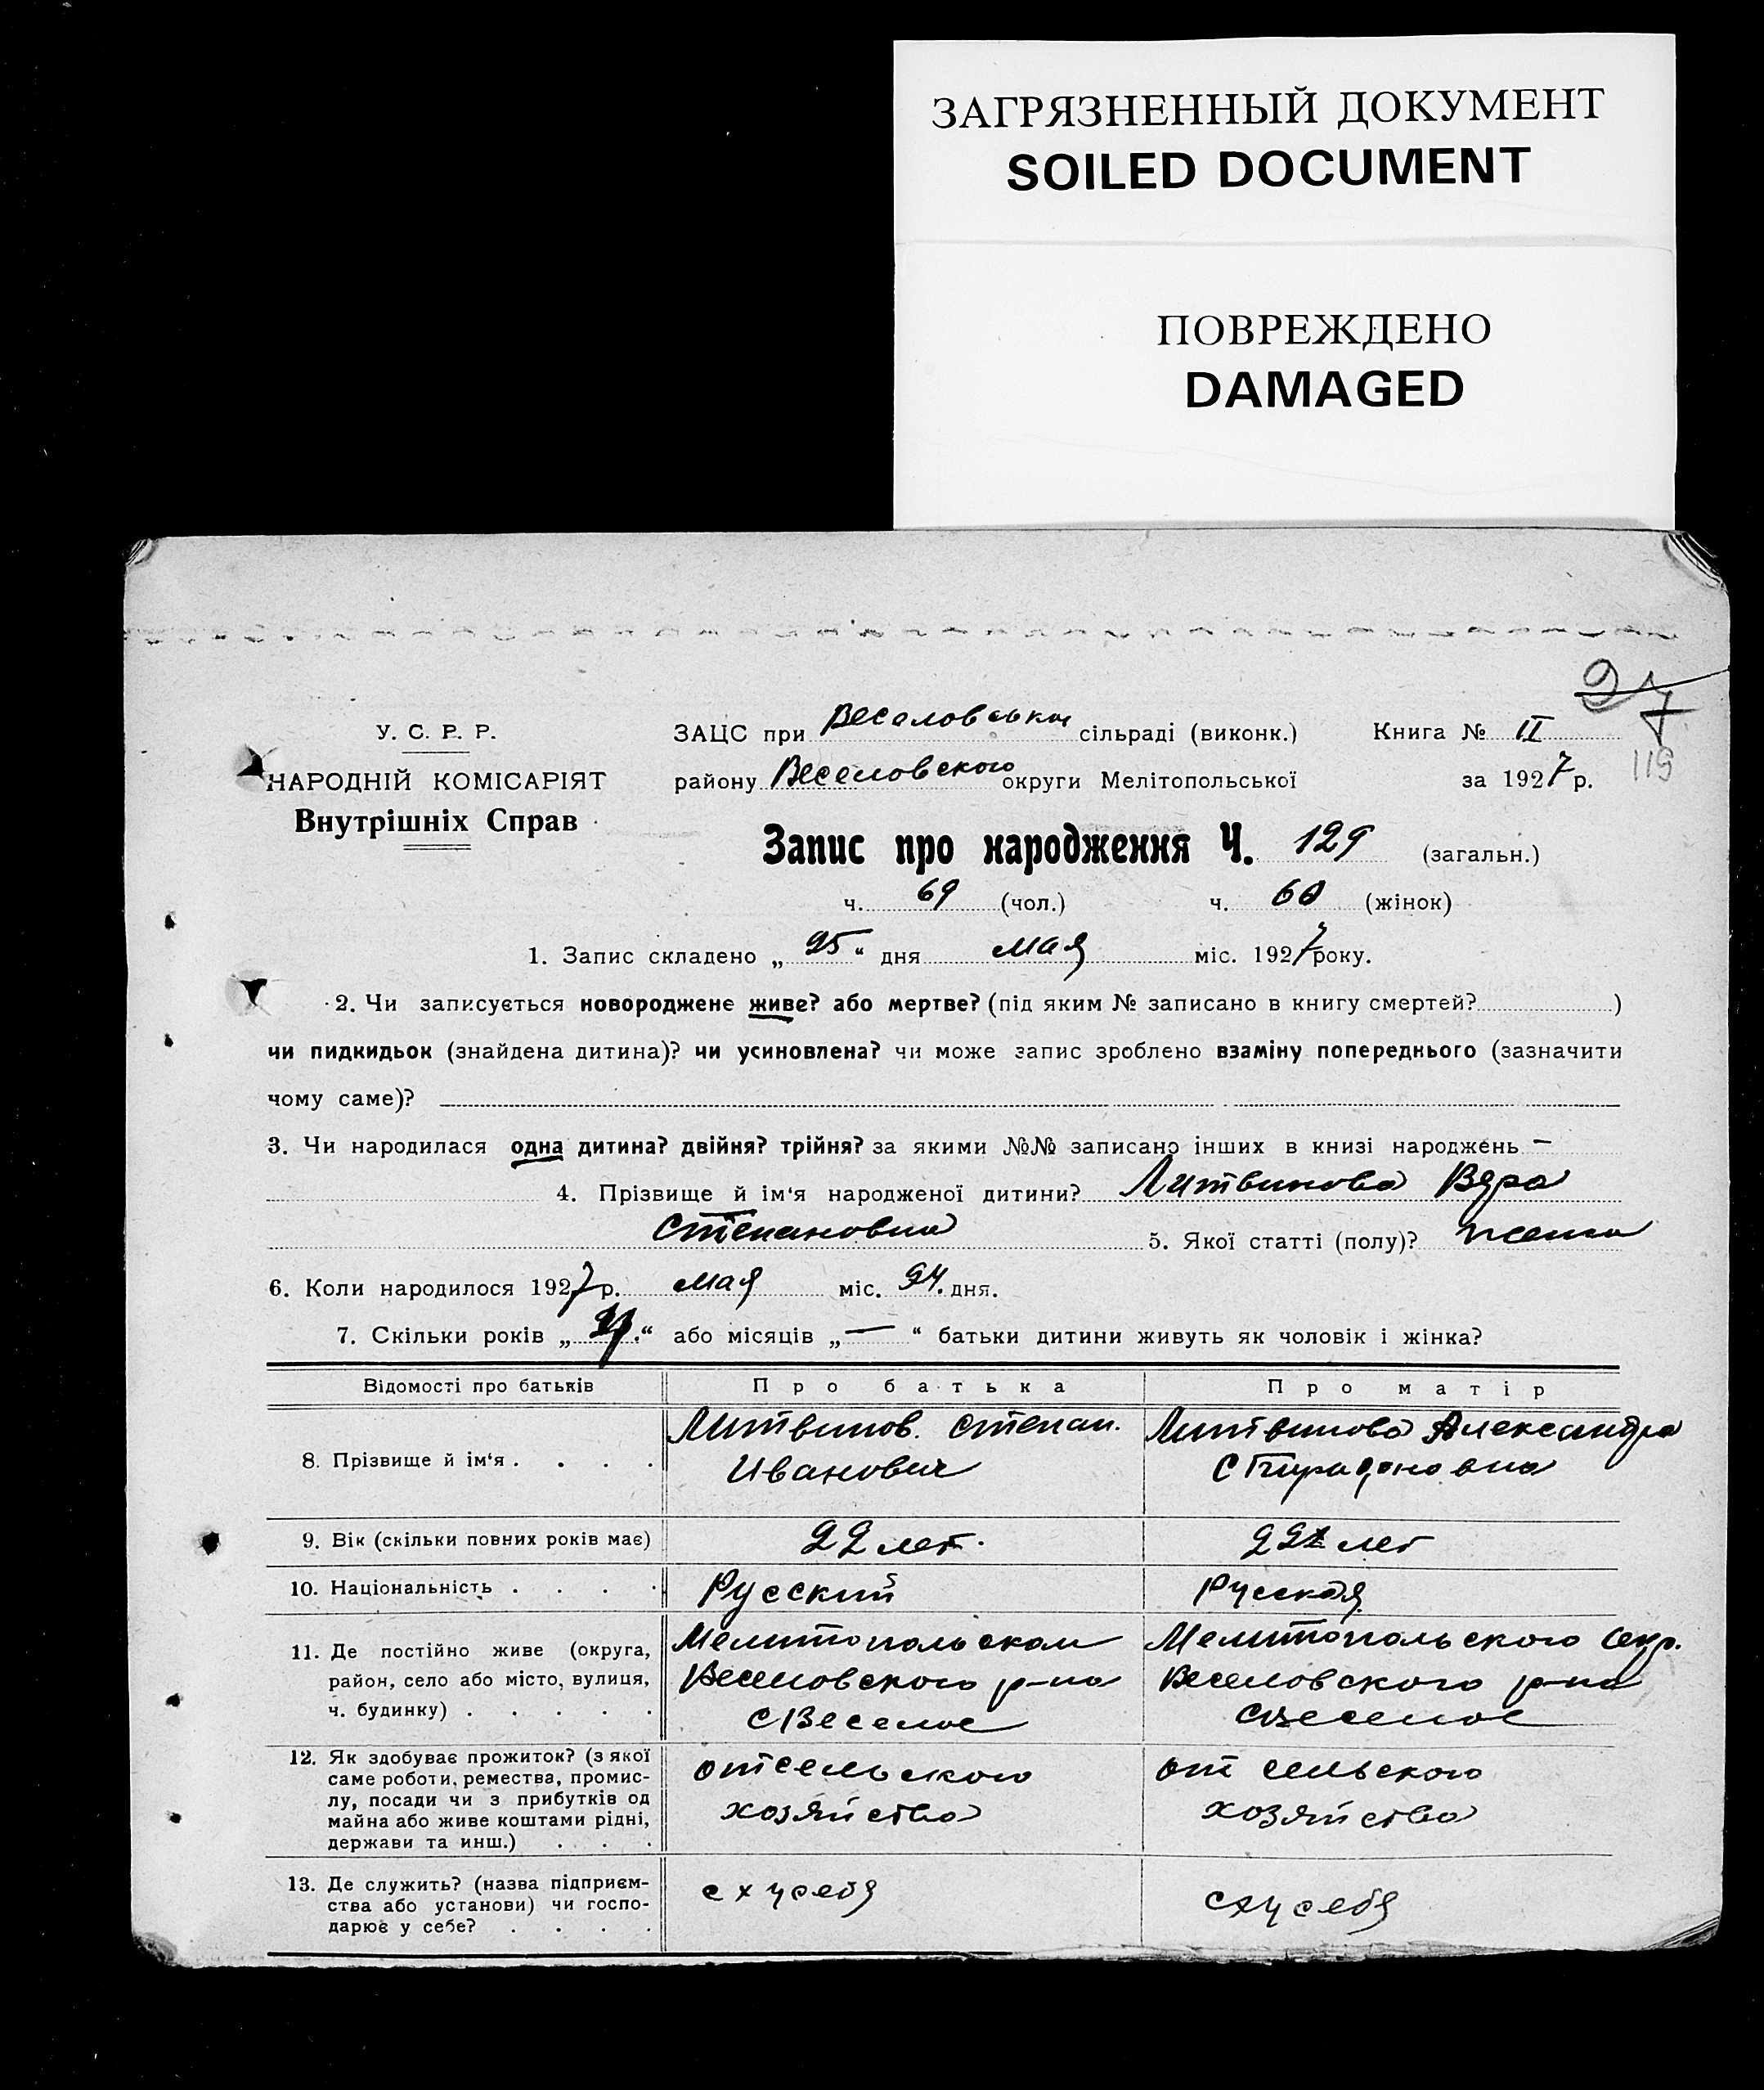 ЗАГРЯЗНЕННЫЙ ДОКУМЕНТ
SOILED DOCUMENT
ПОВРЕЖДЕНО
DAMAGED
27
119
У. С. Р. Р.
НАРОДНІЙ КОМІСАРІЯТ
Внутрішніх Справ
ЗАЦС при Веселовськи сільраді (виконк.) Книга № II
району Веселовского округи Мелітопольської за 1927 р.
Запис про народження Ч. 129 (загальн.)
ч. 69 (чол.) ч. 60 (жінок)
1. Запис складено „ 25 “ дня мая міс. 1927 року.
2. Чи записується новороджене живе? або мертве? (під яким № записано в книгу смертей? )
чи пидкидьок (знайдена дитина)? чи усиновлена? чи може запис зроблено взаміну попереднього (зазначити
чому саме)?
3. Чи народилася одна дитина? двійня? трійня? за якими №№ записано інших в книзі народжень —
4. Прізвище й ім‘я народженої дитини? Литвинова Вера
Степановна 5. Якої статті (полу)? женска
6. Коли народилося 1927 р. мая міс. 24. дня.
7. Скільки років „ “ або місяців „ — “ батьки дитини живуть як чоловік і жінка?
Відомості про батьків Про батька Про матір
8. Прізвище й ім‘я . . . . .
Литвинов. Степан.
Иванович
Литвинова Александра
Спиридоновна
9. Вік (скільки повних років має) 22 лет. 22 лет
10. Національність . . . . Русский Руская
11. Де постійно живе (округа,
район, село або місто, вулиця,
ч. будинку) . . . . .
Мелитопольском
Веселовского р-на
с Веселое
Мелитопольского окр.
Веселовского р-на
с Веселое
12. Як здобуває прожиток? (з якої
саме роботи, ремества, промис-
лу, посади чи з прибутків од
майна або живе коштами рідні,
держави та инш.) . . .
от сельского
хозяйства
от сельского
хозяйства
13. Де служить? (назва підприєм-
ства або установи) чи госпо-
дарює у себе? . . . .
сх у себя
сх у себя